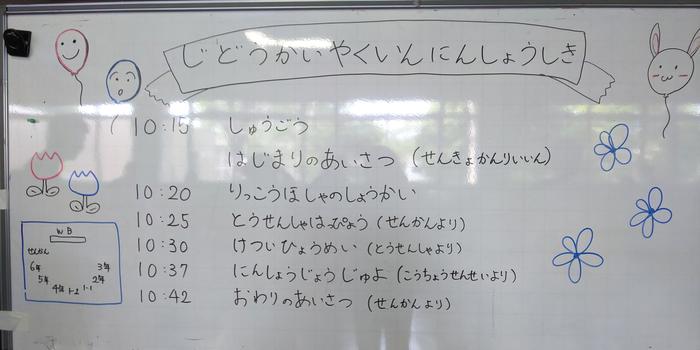 じどうかいやくいんにんしょうしき
10:15 しゅうごう
はじまりのあいさつ (せんきょかんりいいん)
10:20 りっこうほしゃのしょうかい
10:25 とうせんしゃはっぴょう (せんかんより)
10:30 けついひょうめい (とうせんしゃより)
10:37 にんしょうじょうじゅよ (こうちょうせんせいより)
10:42 おわりのあいさつ (せんかんより)
WB
せんかん
6年 3年
5年 2年
4年 1-2 1-1